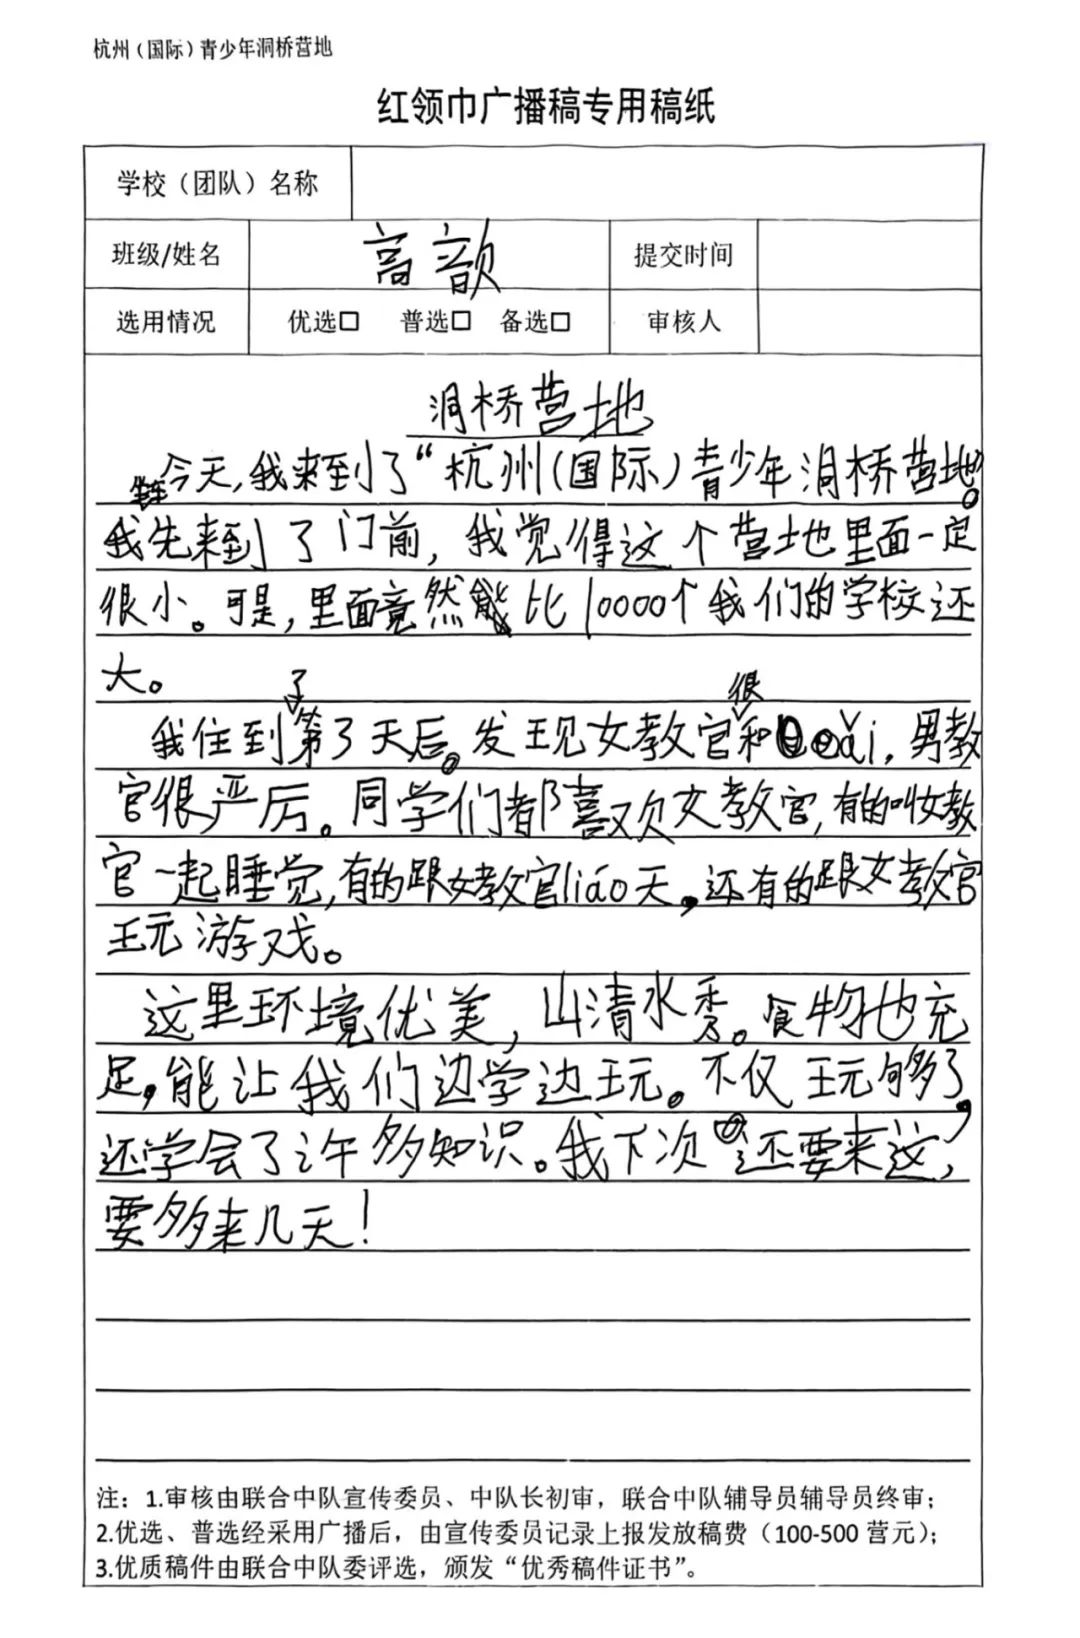 杭州（国际）青少年洞桥营地
红领巾广播稿专用稿纸
学校（团队）名称
班级/姓名 高歆 提交时间
选用情况 优选□ 普选□ 备选□ 审核人
洞桥营地
今天,我来到了“杭州(国际)青少年洞桥营地。
我先来到了门前,我觉得这个营地里面一定
很小。可是,里面竟然能比10000个我们的学校还
大。
我住到了第3天后。发现女教官很和ǎi,男教
官很严厉。同学们都喜欢女教官,有的叫女教
官一起睡觉,有的跟女教官liáo天,还有的跟女教官
玩游戏。
这里环境优美,山清水秀。食物也充
足,能让我们边学边玩。不仅玩够了,
还学会了许多知识。我下次还要来这,
要多来几天!
注：1.审核由联合中队宣传委员、中队长初审，联合中队辅导员辅导员终审；
2.优选、普选经采用广播后，由宣传委员记录上报发放稿费（100-500 营元）；
3.优质稿件由联合中队委评选，颁发“优秀稿件证书”。